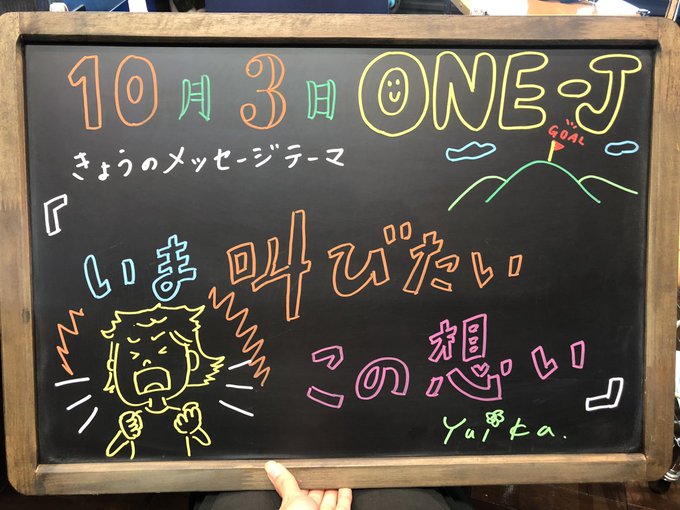 10月3日 ONE-J
GOAL
きょうのメッセージテーマ
『いま叫びたい
この想い』
Yuika.